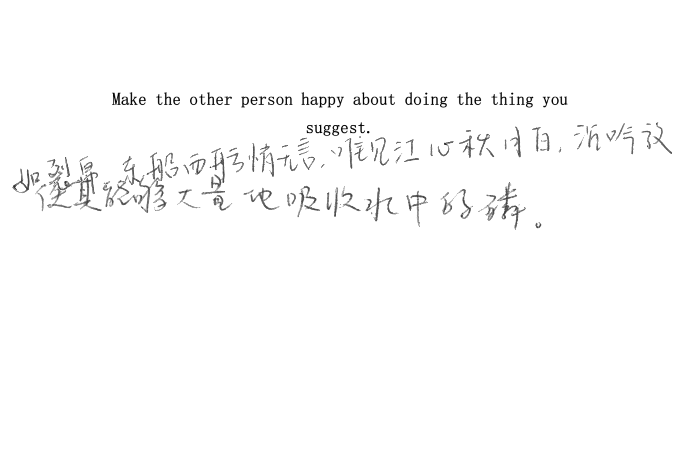 Make the other person happy about doing the thing you
suggest.
如裂帛。东船西舫悄无言，唯见江心秋月白，沉吟放
使其能够大量地吸收水中的磷。